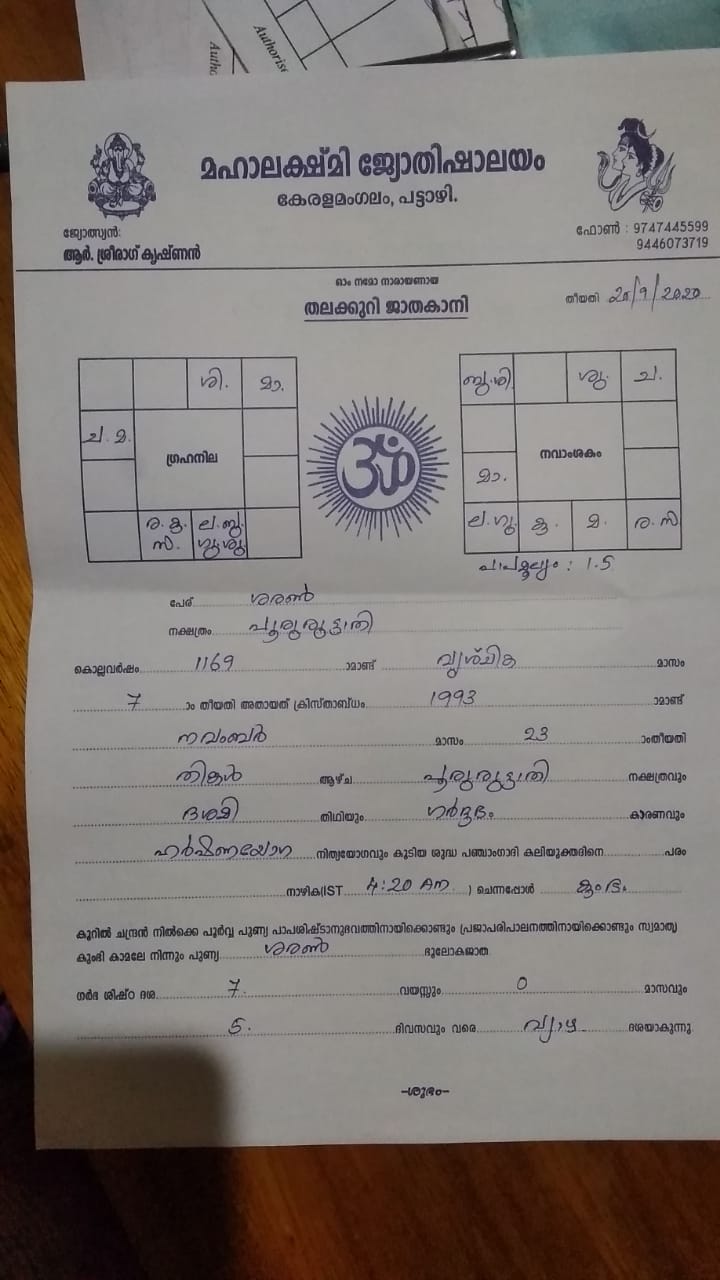 Authorise
Autho
മഹാലക്ഷ്മി ജ്യോതിഷാലയം
കേരളമംഗലം, പട്ടാഴി.
ജ്യോത്സ്യൻ:
ആർ. ശ്രീരാഗ് കൃഷ്ണൻ
ഫോൺ : 9747445599
9446073719
ഓം നമോ നാരായണായ
തലക്കുറി ജാതകാനി
തീയതി 20/9/2020
ശി. മാ.
ച. മ.
ഗ്രഹനില
ര. കു. ല. ബു.
സ. ഗു. ശു
ബു. ശി ശു. ച.
നവാംശകം
മാ.
ല. ഗു. കു. മ. ര. സ
പാപമൂല്യം : 1.5
പേര് ശരൺ
നക്ഷത്രം പൂരുരുട്ടാതി
കൊല്ലവർഷം 1169 ാമാണ്ട് വൃശ്ചിക മാസം
7 ാം തീയതി അതായത് ക്രിസ്താബ്ധം 1993 ാമാണ്ട്
നവംബർ മാസം 23 ാംതീയതി
തിങ്കൾ ആഴ്ച പൂരുരുട്ടാതി നക്ഷത്രവും
ദശമി തിഥിയും ഗർദ്ദഭം കാരണവും
ഹർഷണയോഗ നിത്യയോഗവും കൂടിയ ശുദ്ധ പഞ്ചാംഗാദി കലിയുക്തദിനെ പരം
നാഴിക(IST 4:20 Am ) ചെന്നപ്പോൾ കുംഭം
കൂറിൽ ചന്ദ്രൻ നിൽക്കെ പൂർവ്വ പുണ്യ പാപശിഷ്ടാനുഭവത്തിനായിക്കൊണ്ടും പ്രജാപരിപാലനത്തിനായിക്കൊണ്ടും സ്വമാതൃ
കുംഭി കാമലേ നിന്നും പുണ്യ ശരൺ ഭൂലോകജാത
ഗർഭ ശിഷ്ഠ ദശ 7 വയസ്സും 0 മാസവും
5 ദിവസവും വരെ വ്യാഴ ദശയാകുന്നു
-ശുഭം-